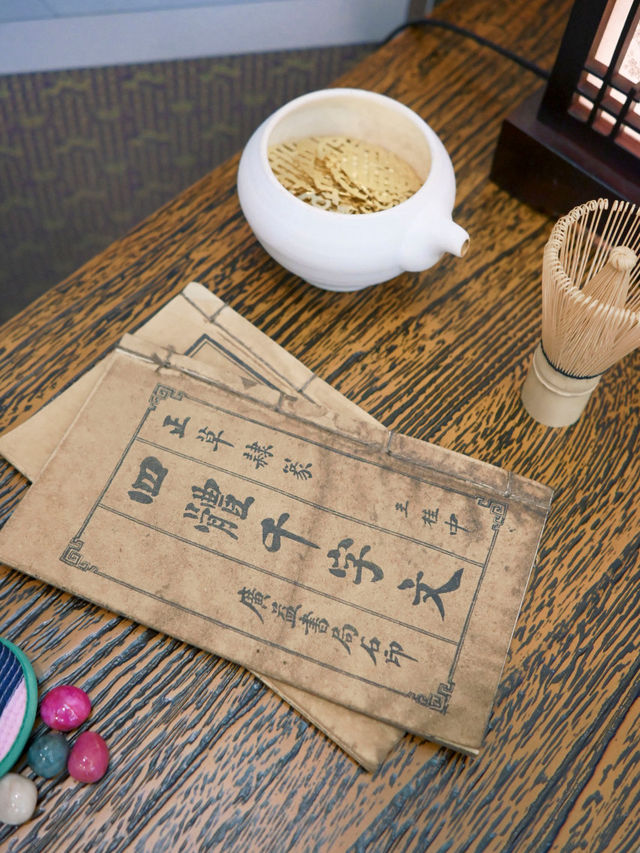 正草隸篆
王桂中
四體千字文
廣益書局石印